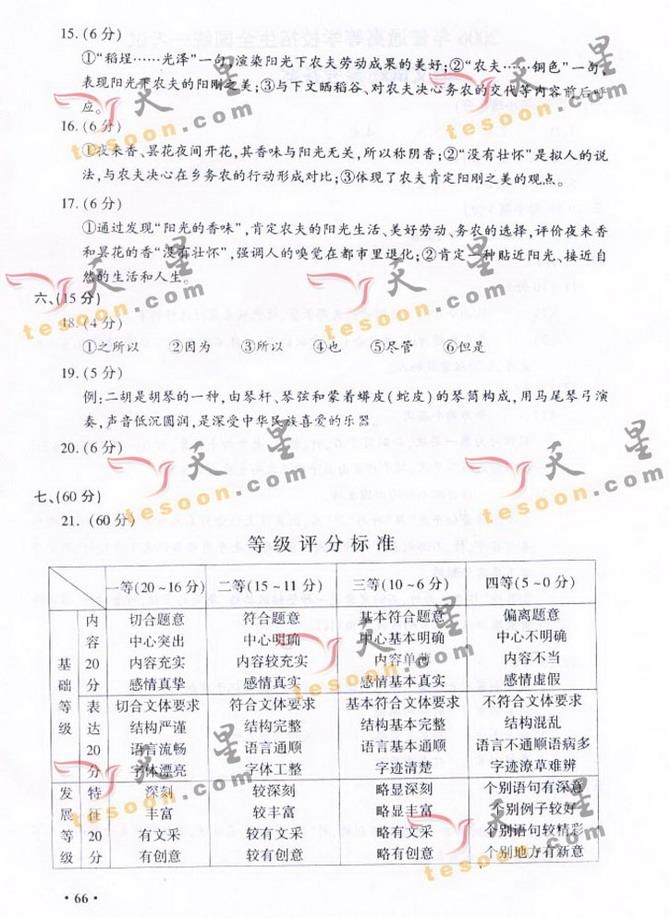 15.(6分)
①“稻埕……光泽”一句,渲染阳光下农夫劳动成果的美好;②“农夫……铜色”一句,
表现阳光下农夫的阳刚之美;③与下文晒稻谷、对农夫决心务农的交代等内容前后呼
应。
16.(6分)
①夜来香、昙花夜间开花,其香味与阳光无关,所以称阴香;②“没有壮怀”是拟人的说
法,与农夫决心在乡务农的行动形成对比;③体现了农夫肯定阳刚之美的观点。
17.(6分)
①通过发现“阳光的香味”,肯定农夫的阳光生活、美好劳动、务农的选择,评价夜来香
和昙花的香“没有壮怀”,强调人的嗅觉在都市里退化;②肯定一种贴近阳光、接近自
然的生活和人生。
六、(15分)
18.(4分)
①之所以 ②因为 ③所以 ④也 ⑤尽管 ⑥但是
19.(5分)
例:二胡是胡琴的一种,由琴杆、琴弦和蒙着蟒皮(蛇皮)的琴筒构成,用马尾琴弓演
奏,声音低沉圆润,是深受中华民族喜爱的乐器。
20.(6分)
七、(60分)
21.(60分)
等级评分标准
一等(20~16分) 二等(15~11分) 三等(10~6分) 四等(5~0分)
基础等级
内容20分
切合题意 符合题意 基本符合题意 偏离题意
中心突出 中心明确 中心基本明确 中心不明确
内容充实 内容较充实 内容单薄 内容不当
感情真挚 感情真实 感情基本真实 感情虚假
表达20分
切合文体要求 符合文体要求 基本符合文体要求 不符合文体要求
结构严谨 结构完整 结构基本完整 结构混乱
语言流畅 语言通顺 语言基本通顺 语言不通顺语病多
字体漂亮 字体工整 字迹清楚 字迹潦草难辨
发展等级
特征20分
深刻 较深刻 略显深刻 个别语句有深意
丰富 较丰富 略显丰富 个别例子较好
有文采 较有文采 略有文采 个别语句较精彩
有创意 较有创意 略有创意 个别地方有新意
·66·
天星
tesoon.com
天星
tesoon.com
天星
tesoon.com
天星
tesoon.com
天星
tesoon.com
天星
tesoon.com
天星
tesoon.com
天星
tesoon.com
天星
tesoon.com
天星
tesoon.com